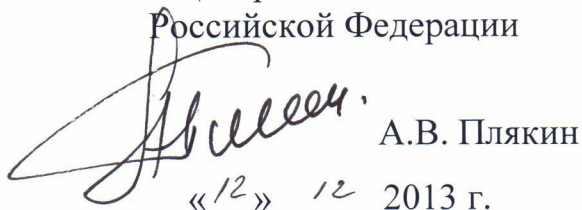 Российской Федерации
А.В. Плякин
«12» 12 2013 г.